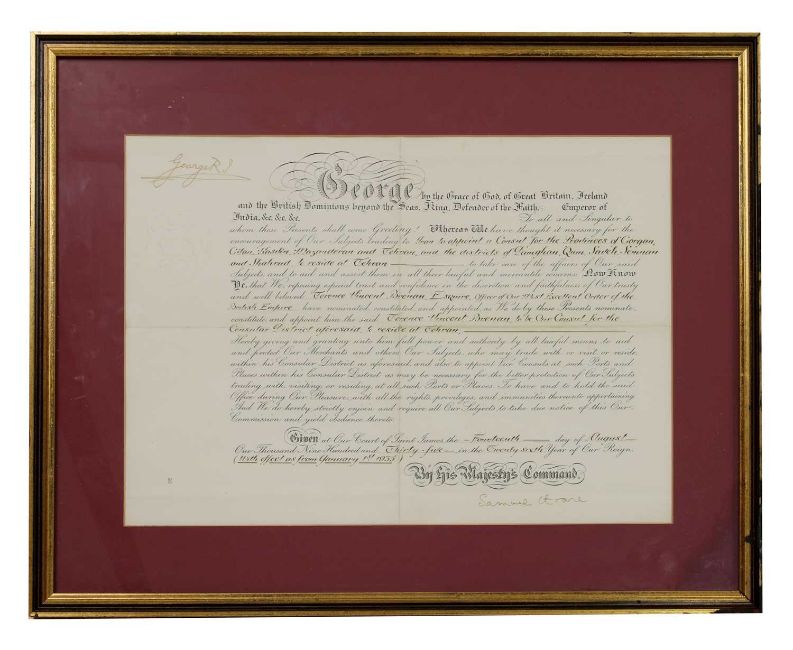 George R I
George by the Grace of God, of Great Britain, Ireland
and the British Dominions beyond the Seas, King, Defender of the Faith, Emperor of
India, &c. &c. &c. To all and Singular to
whom these Presents shall come Greeting! Whereas We have thought it necessary for the
encouragement of Our Subjects trading to Iran to appoint a Consul for the Provinces of Gorgan,
Gilan, Mazanderan and Tehran, and the districts of Damghan, Qum, Saveh, Semnan
and Shahrud to reside at Tehran to take care of the affairs of Our said
Subjects and to aid and assist them in all their lawful and mercantile concerns Now Know
Ye, that We, reposing especial trust and confidence in the discretion and faithfulness of Our trusty
and well beloved Terence Vincent Brenan, Esquire, Officer of Our Most Excellent Order of the
British Empire, have nominated, constituted and appointed as We do by these Presents nominate,
constitute and appoint him the said Terence Vincent Brenan, to be Our Consul for the
Consular District aforesaid to reside at Tehran
Hereby giving and granting unto him full power and authority by all lawful means to aid
and protect Our Merchants and others Our Subjects who may trade with or visit or reside
within his Consular District as aforesaid and also to appoint Vice Consuls at such Ports and
Places within his Consular District as may be necessary for the better protection of Our Subjects
trading with, visiting or residing at, all such Ports or Places. To have and to hold the said
Office during Our Pleasure, with all the rights, privileges, and immunities thereunto appertaining
And We do hereby strictly enjoin and require all Our Subjects to take due notice of this Our
Commission and yield obedience thereto
Given at Our Court of Saint James the Fourteenth day of August
One Thousand Nine Hundred and Thirty-five in the Twenty sixth Year of Our Reign.
(With effect as from January 1st 1935)
By His Majesty's Command.
Samuel Hoare